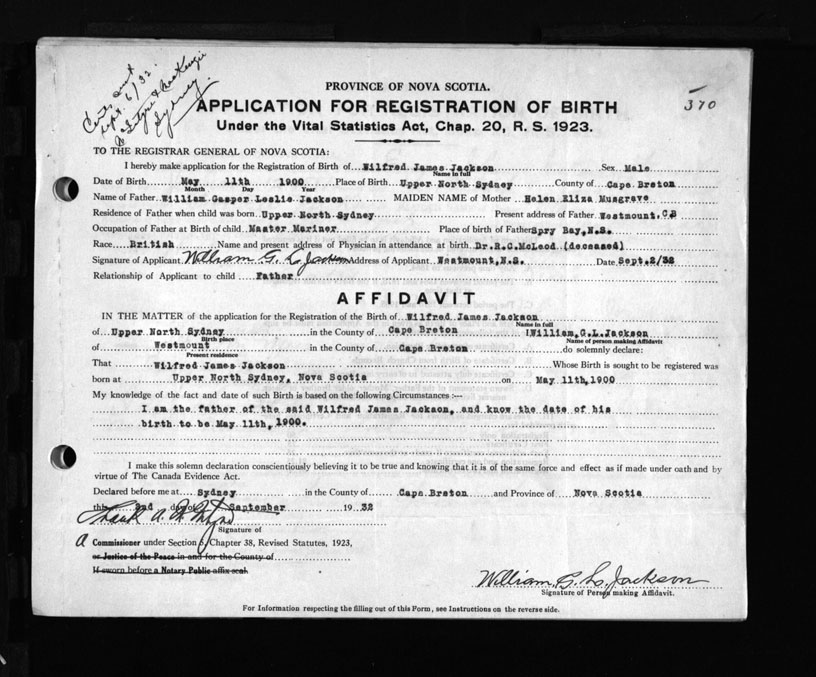 Certs sent
Sept. 6/32.
Sydney.
370
PROVINCE OF NOVA SCOTIA.
APPLICATION FOR REGISTRATION OF BIRTH
Under the Vital Statistics Act, Chap. 20, R. S. 1923.
TO THE REGISTRAR GENERAL OF NOVA SCOTIA:
I hereby make application for the Registration of Birth of Wilfred James Jackson Sex Male
Name in full
Date of Birth May 11th 1900 Place of Birth Upper North Sydney County of Cape Breton
Month Day Year
Name of Father William Gasper Leslie Jackson MAIDEN NAME of Mother Helen Eliza Musgrave
Residence of Father when child was born Upper North Sydney Present address of Father Westmount, C.B
Occupation of Father at Birth of child Master Mariner Place of birth of Father Spry Bay, N.S.
Race British Name and present address of Physician in attendance at birth Dr. R.C. McLeod (deceased)
Signature of Applicant William G. L. Jackson Address of Applicant Westmount, N.S. Date Sept. 2/32
Relationship of Applicant to child Father
AFFIDAVIT
IN THE MATTER of the application for the Registration of the Birth of Wilfred James Jackson
Name in full
of Upper North Sydney in the County of Cape Breton I William, G.L. Jackson
Birth place Name of person making Affidavit
of Westmount in the County of Cape Breton do solemnly declare:
Present residence
That Wilfred James Jackson Whose Birth is sought to be registered was
born at Upper North Sydney, Nova Scotia on May 11th, 1900
My knowledge of the fact and date of such Birth is based on the following Circumstances :—
I am the father of the said Wilfred James Jackson, and know the date of his
birth to be May 11th, 1900.
I make this solemn declaration conscientiously believing it to be true and knowing that it is of the same force and effect as if made under oath and by
virtue of The Canada Evidence Act.
Declared before me at Sydney in the County of Cape Breton and Province of Nova Scotia
this 2nd day of September 19 32
Frank A.
Signature of
A Commissioner under Section 5, Chapter 38, Revised Statutes, 1923,
or Justice of the Peace in and for the County of
If sworn before a Notary Public affix seal.
William, G. L. Jackson
Signature of Person making Affidavit.
For Information respecting the filling out of this Form, see Instructions on the reverse side.